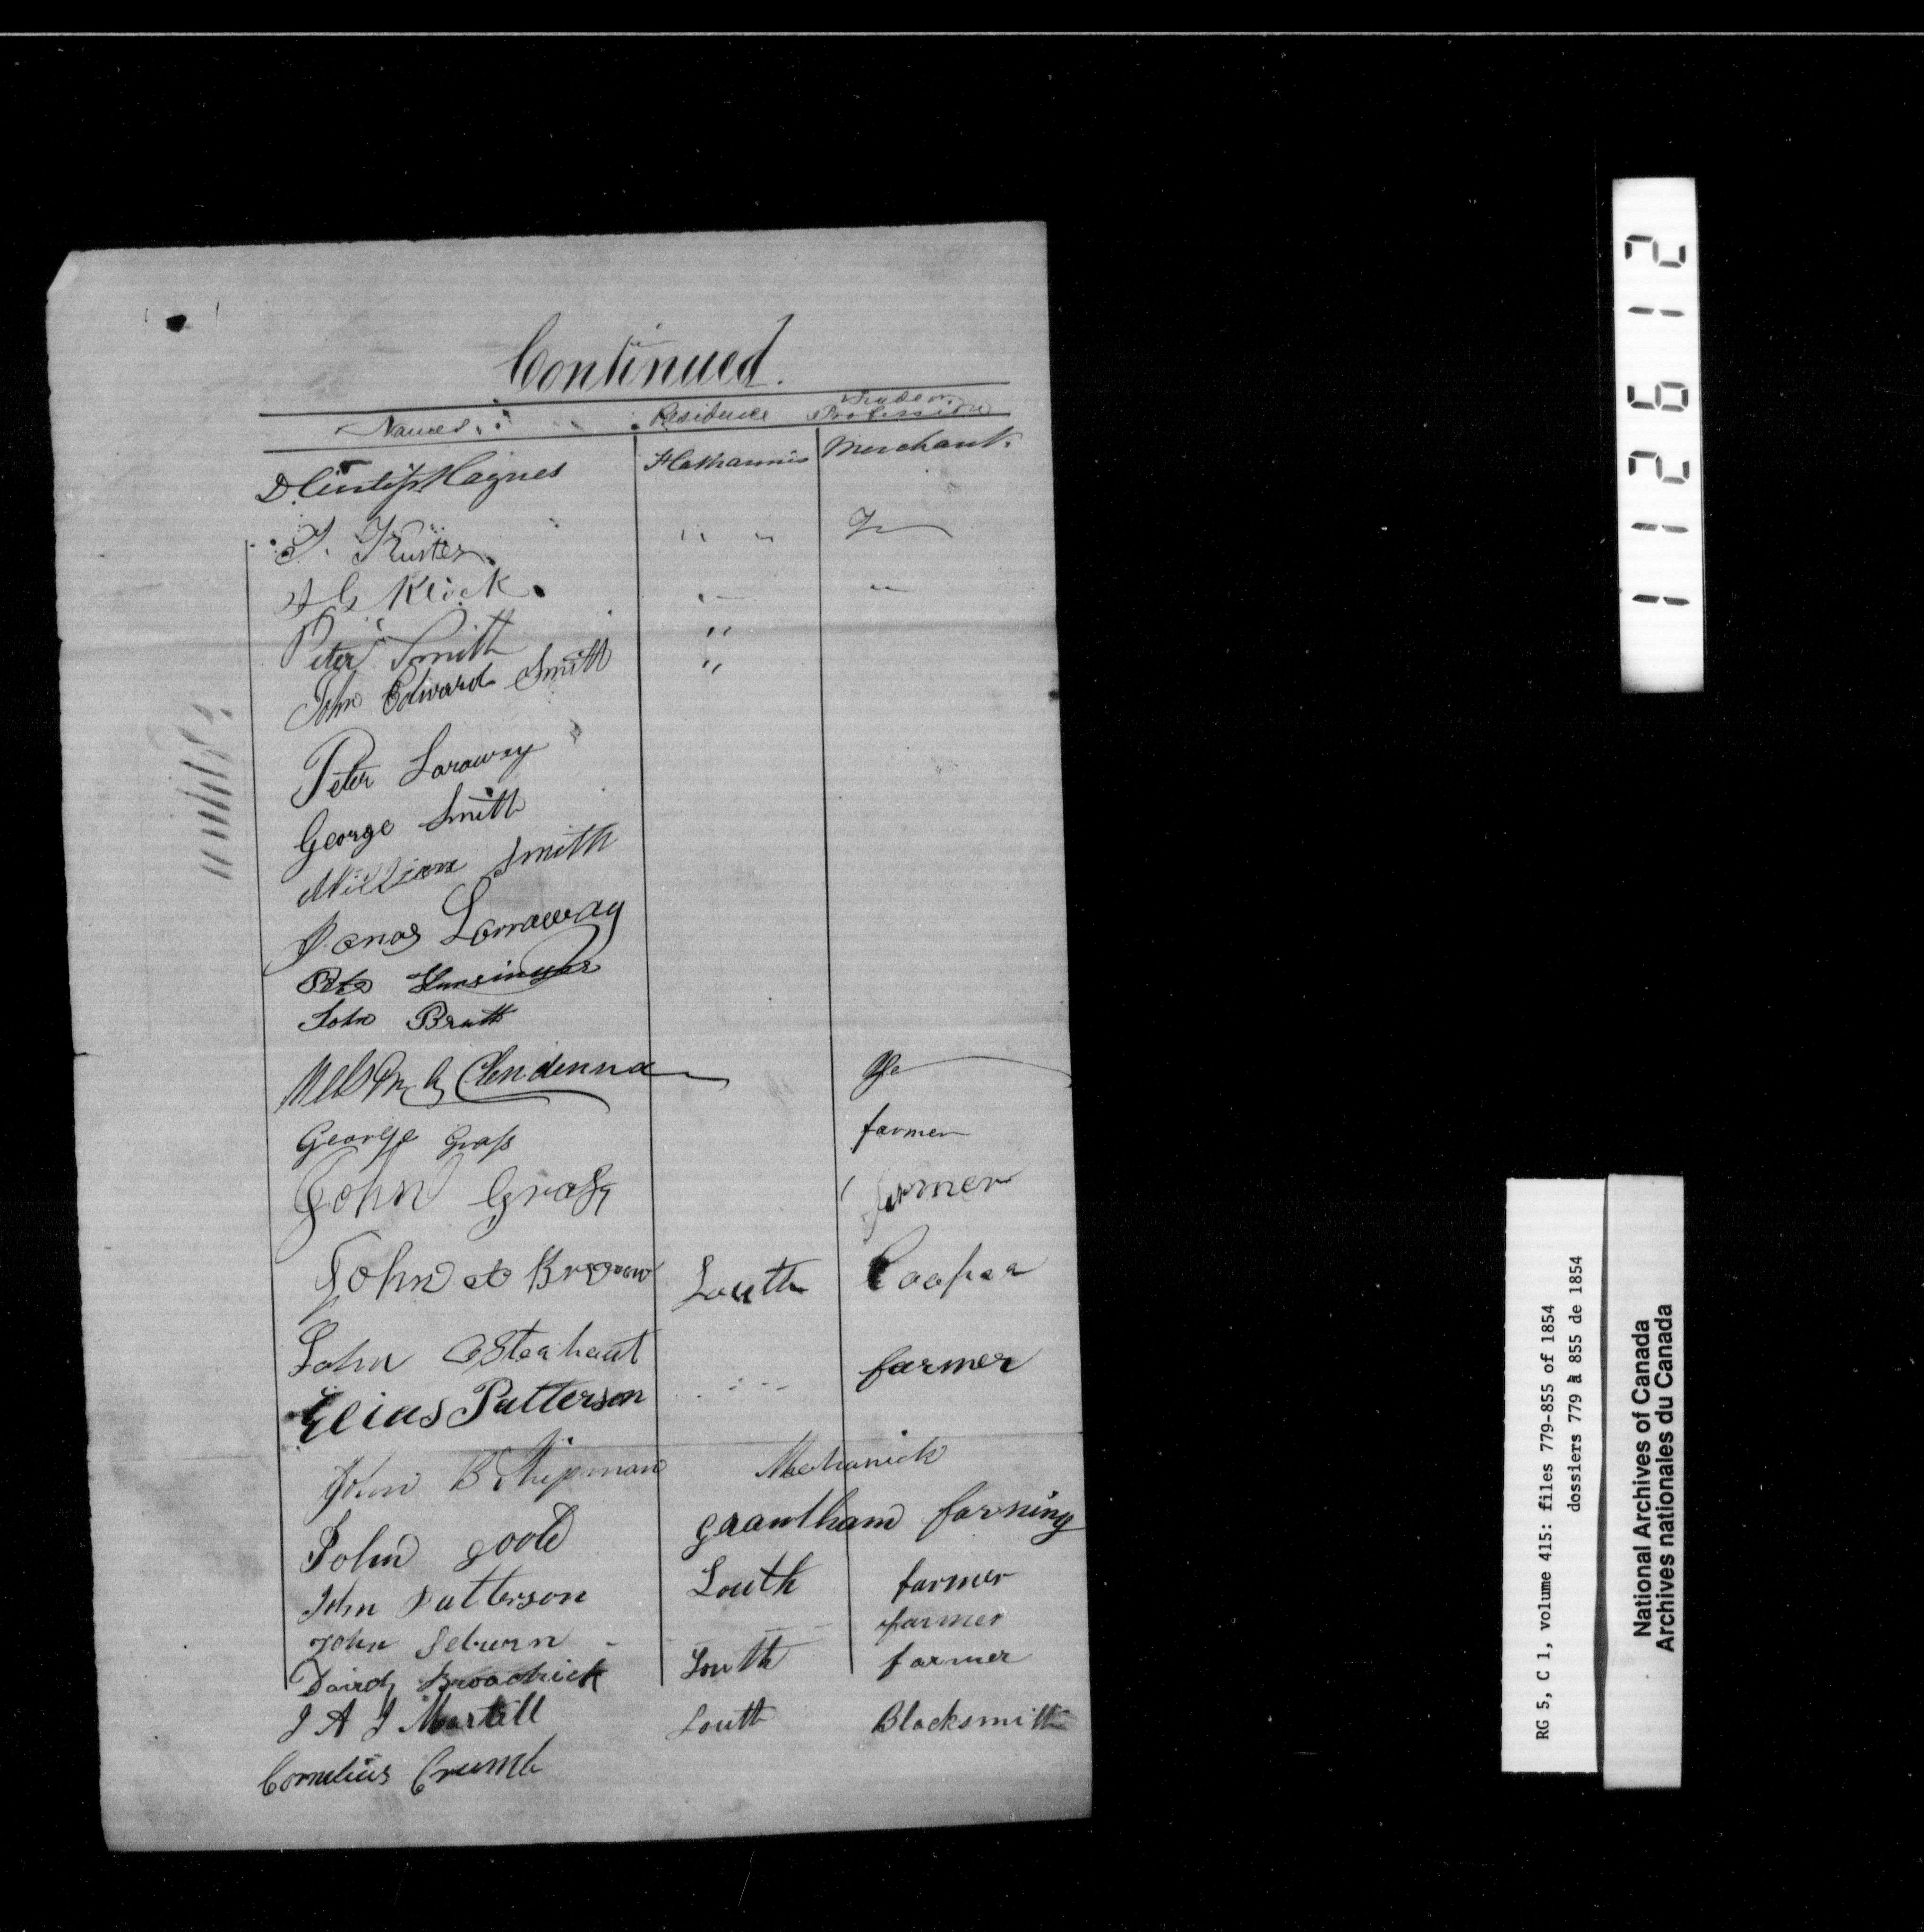 Continued.
Names. Residence Trade or
Profession
D Curtiss Haynes St Catharines Merchant.
J. Kuster " " Do
" "
Peter Smith "
John Edward Smith "
Peter Laraway
George Smith
William Smith
Jonas Larraway
Peter Hunsinger
John Bratt
Nelson G Clendennan Do
George Grass farmer
John Grass farmer
John Brown Louth Cooper
John Osterhout farmer
Elias Patterson
John B Shipman Mechanick
John goold graantham farming
John Patterson Louth farmer
John Seburn farmer
David Broadrick Louth farmer
J A J Martell Louth Blacksmith
Cornelius Crumb
112612
RG 5, C 1, volume 415: files 779-855 of 1854
dossiers 779 à 855 de 1854
National Archives of Canada
Archives nationales du Canada